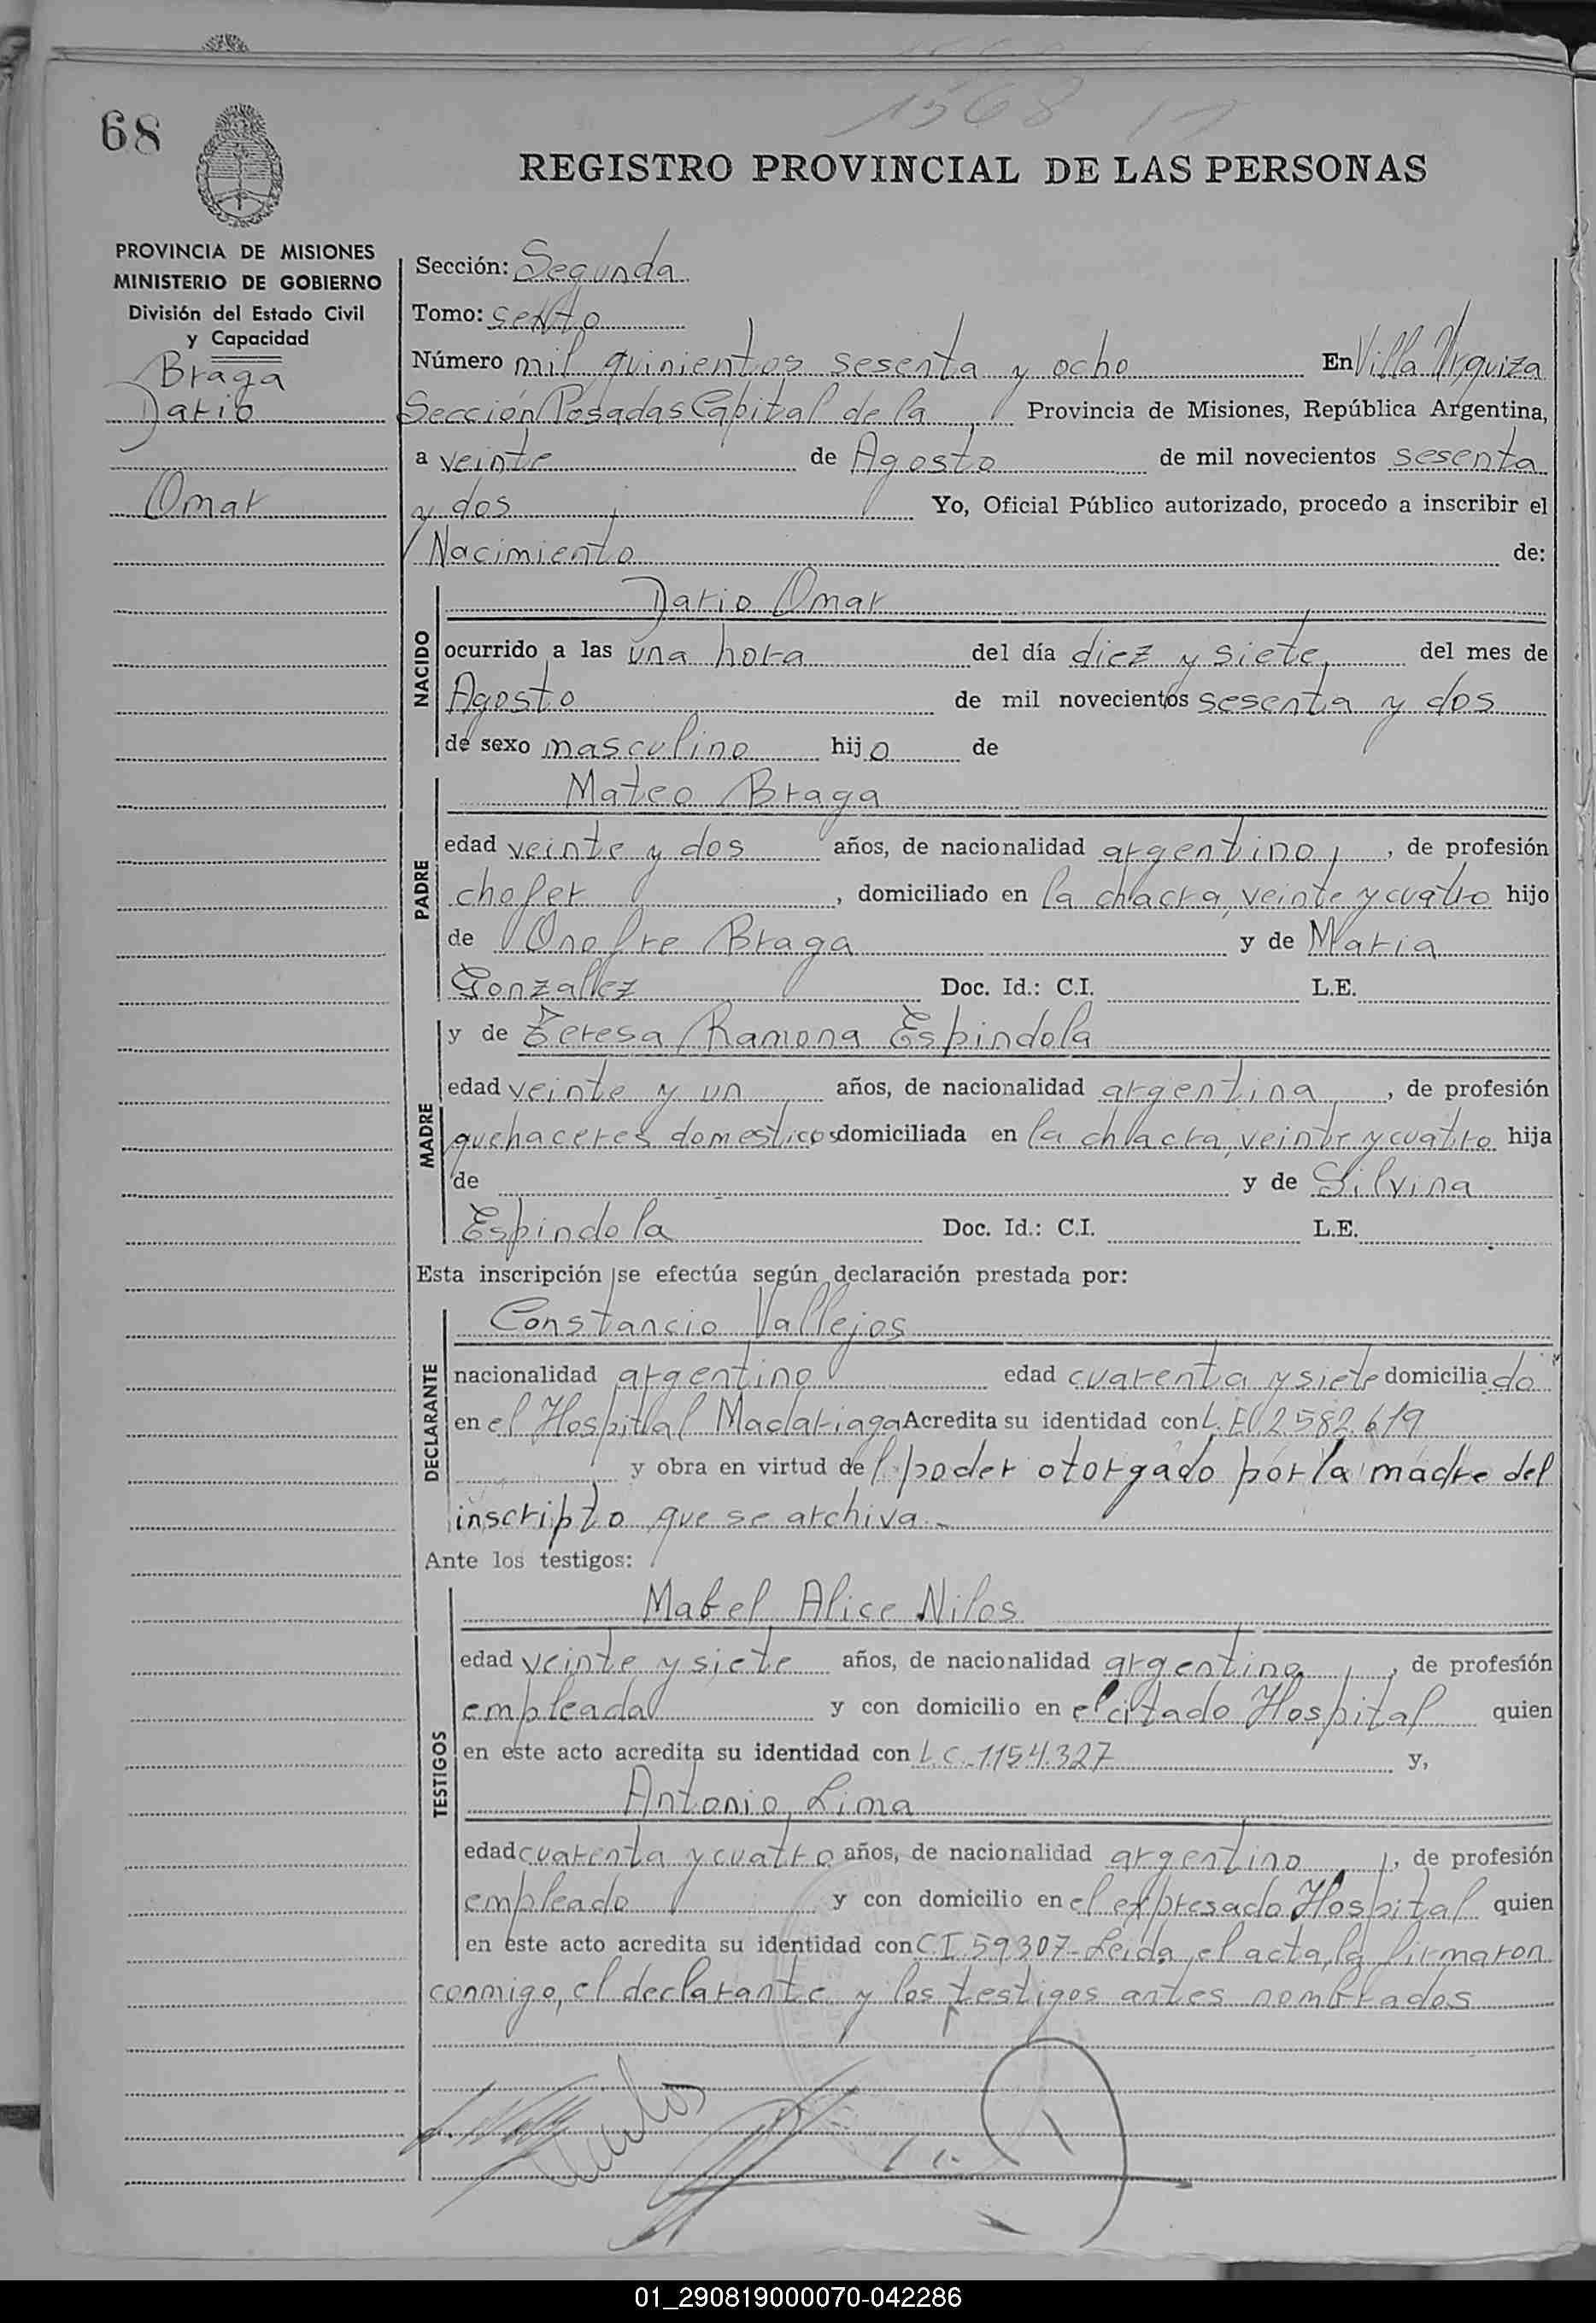 1568
68
REGISTRO PROVINCIAL DE LAS PERSONAS
PROVINCIA DE MISIONES
MINISTERIO DE GOBIERNO
División del Estado Civil
y Capacidad
Braga
Dario
Omar
Sección: Segunda
Tomo: sexto
Número mil quinientos sesenta y ocho En Villa Urquiza
Sección Posadas Capital de la Provincia de Misiones, República Argentina,
a veinte de Agosto de mil novecientos sesenta
y dos Yo, Oficial Público autorizado, procedo a inscribir el
Nacimiento de:
NACIDO
Dario Omar
ocurrido a las una hora del día diez y siete del mes de
Agosto de mil novecientos sesenta y dos
de sexo masculino hijo de
PADRE
Mateo Braga
edad veinte y dos años, de nacionalidad argentino, de profesión
chofer, domiciliado en la chacra veinte y cuatro hijo
de Onofre Braga y de Maria
Gonzallez Doc. Id.: C.I. L.E.
MADRE
y de Teresa Ramona Espindola
edad veinte y un años, de nacionalidad argentina, de profesión
quehaceres domesticos domiciliada en la chacra veinte y cuatro hija
de y de Silvina
Espindola Doc. Id.: C.I. L.E.
Esta inscripción se efectúa según declaración prestada por:
DECLARANTE
Constancio Vallejos
nacionalidad argentino edad cuarenta y siete domiciliado
en el Hospital Madariaga Acredita su identidad con L.E. 2.582.619
y obra en virtud del poder otorgado por la madre del
inscripto que se archiva.-
Ante los testigos:
TESTIGOS
Mabel Alice Nilos
edad veinte y siete años, de nacionalidad argentina, de profesión
empleada y con domicilio en el citado Hospital quien
en este acto acredita su identidad con L.C. 1154.327 y,
Antonio Lima
edad cuarenta y cuatro años, de nacionalidad argentino, de profesión
empleado y con domicilio en el expresado Hospital quien
en este acto acredita su identidad con C.I. 59.307- Leida el acta, la firmaron
conmigo, el declarante y los testigos antes nombrados
01_290819000070-042286